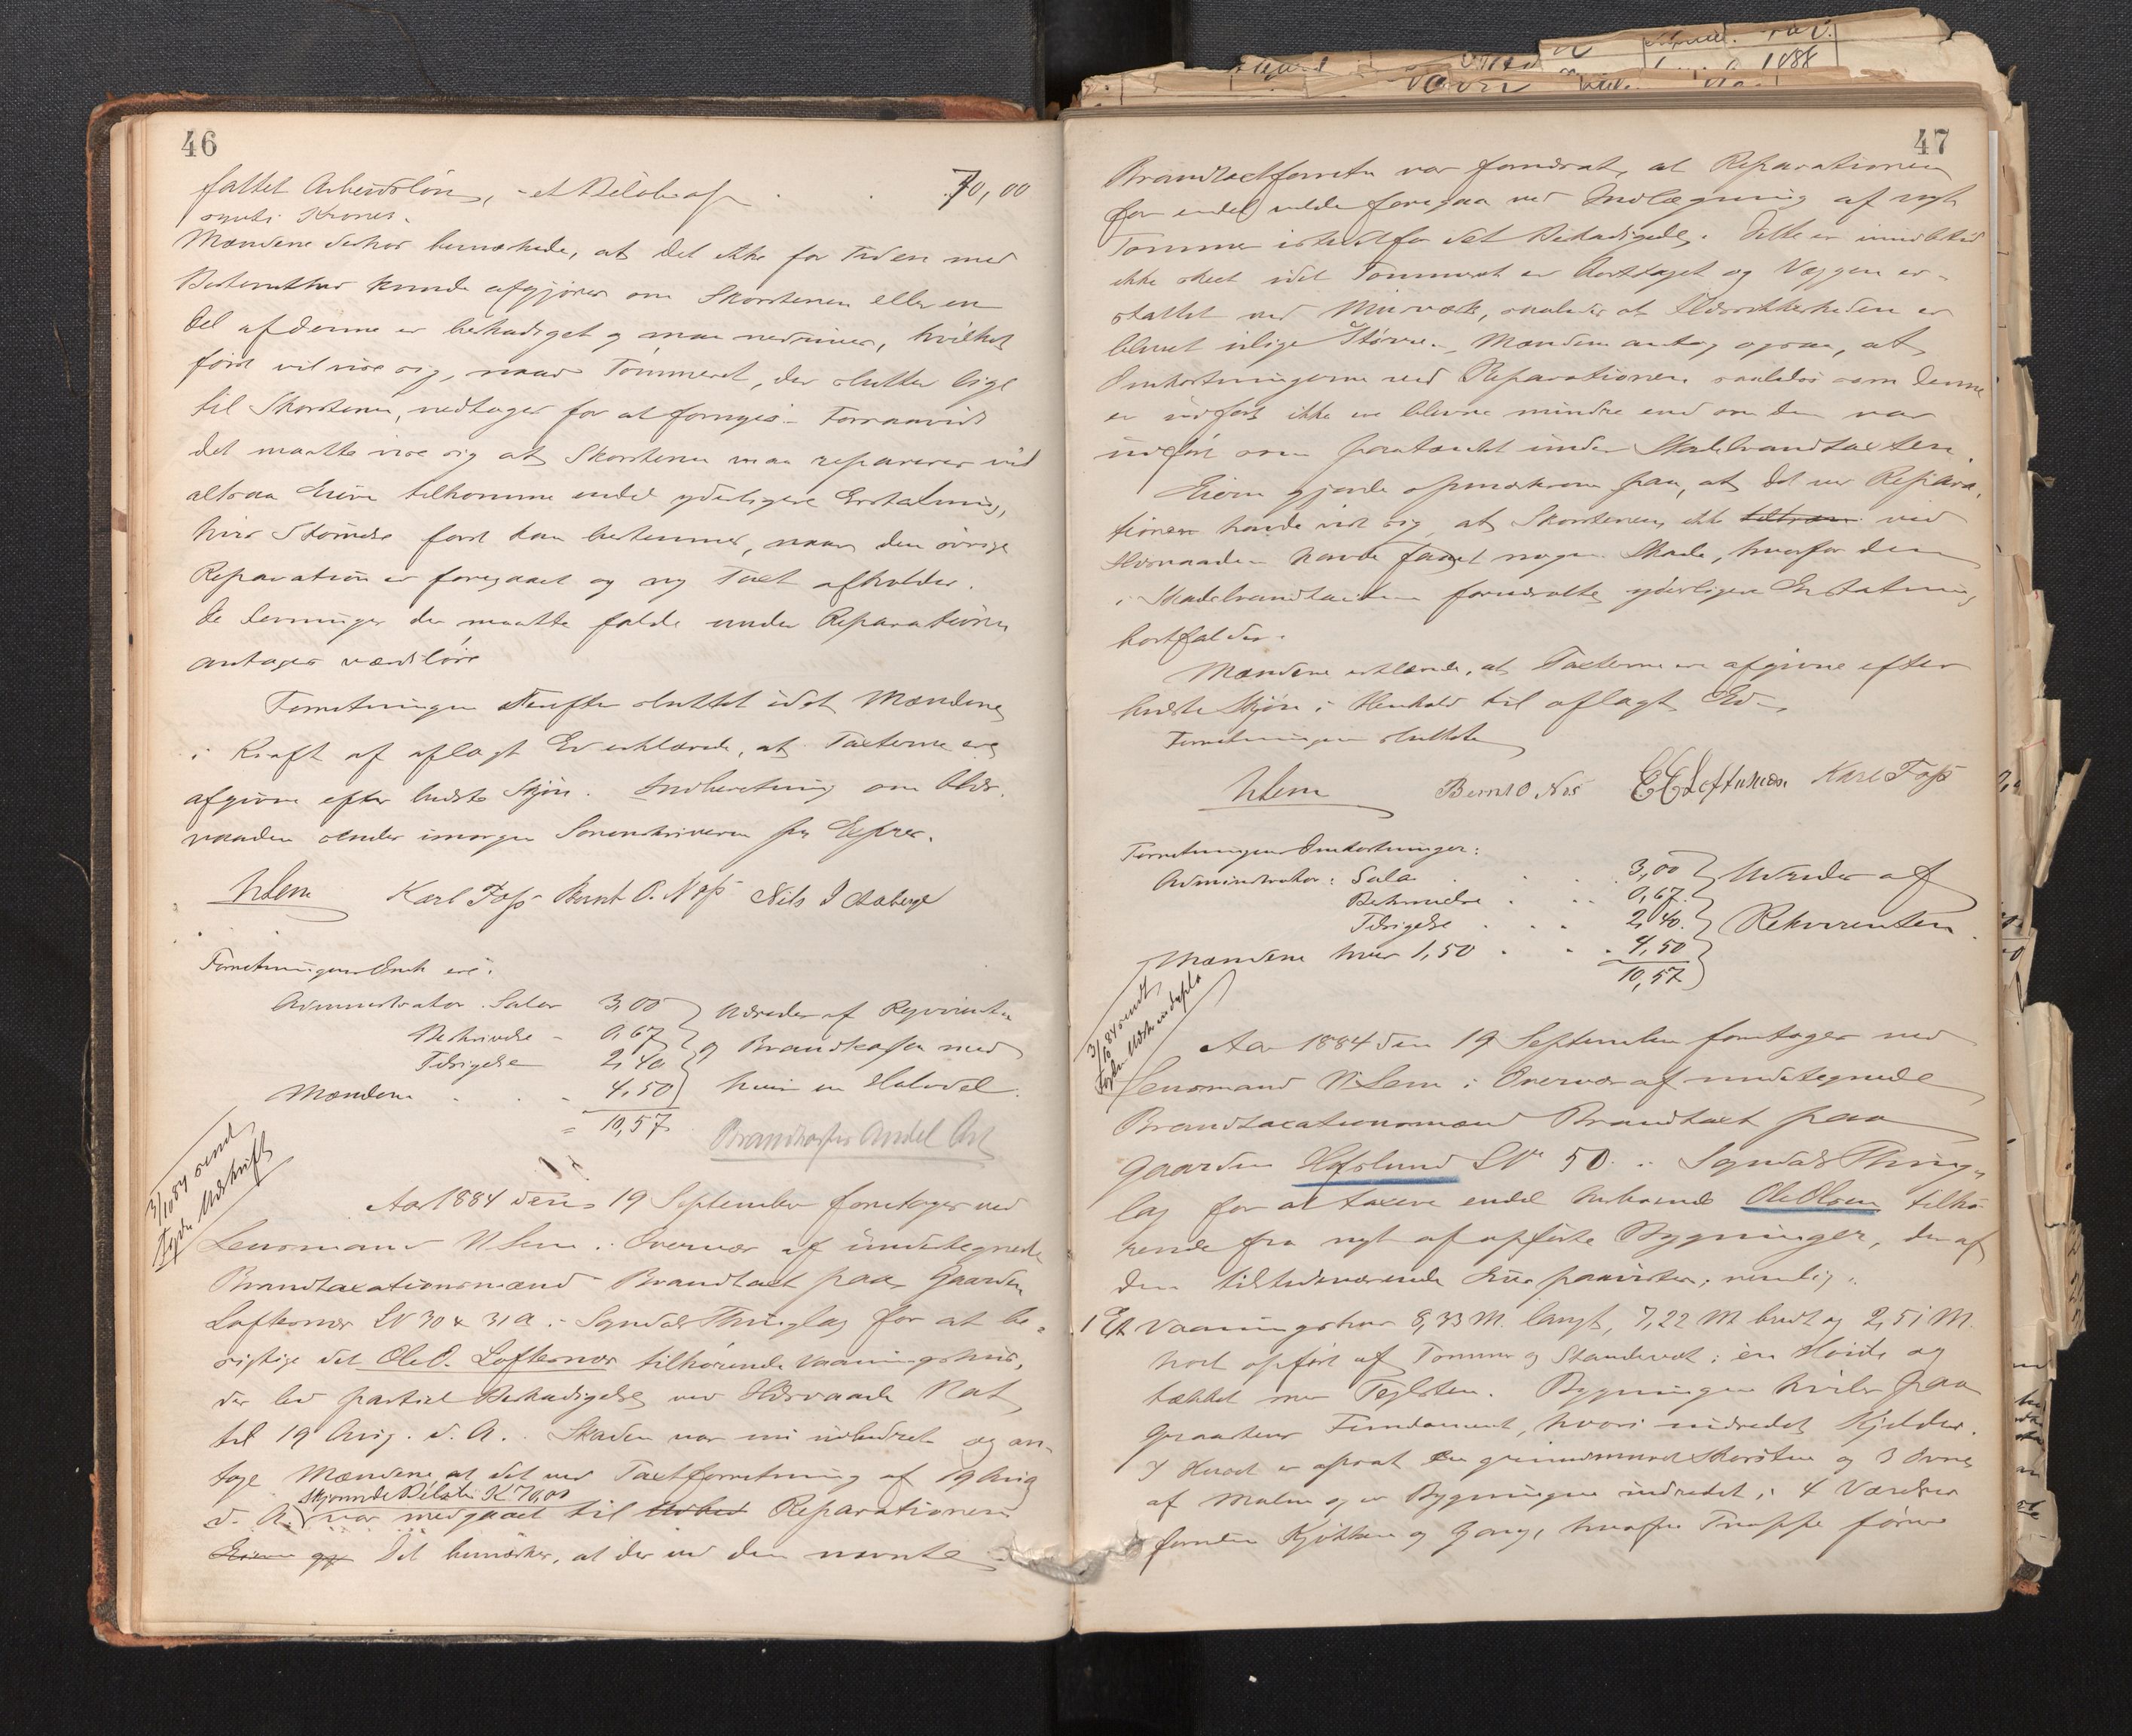 46
fattet Arbeidsløn, et Beløb af . . 70,00
sytti Kroner.
Mændene derhos bemærkede, at det ikke for Tiden med
Bestemthed kunde afgjøres om Skorstenen eller en
Del af denne er beskadiget og maa nedrives, hvilket
først vil vise sig, naar Tømmeret, der slutter lige
til Skorstenen, nedtages for at fornyes. Forsaavidt
det maatte vise sig at Skorstenen maa repareres vil
altsaa Eieren tilkomme endel yderligere Erstatning,
hvis Størrelse først kan bestemmes, naar den øvrige
Reparation er foregaaet og ny Taxt afholdes.
De Levninger der maatte falde under Reparationen
antages værdiløse
Forretningen derefter sluttet idet Mændene
i Kraft af aflagt Ed erklærede, at Taxterne ere
afgivne efter bedste Skjøn. Indberetning om Ilds-
vaaden sendes imorgen Sorenskriveren pr Expres.
NLem Karl Foss Bernt O. Nøss Nils J
Forretningens Omk ere:
Administrator Salær 3,00
Beskrivelse 0,67
Tilsigelse 2,40
Mændene . . . 4,50
= 10,57
Udredes af Rekvirenten
og Brandkassen med
hver en Halvdel.
Brandkassens Andel
3/10 84 sendt
Fogden Udskrift
Aar 1884 den 19 September foretages ved
Lensmand N Lem i Overvær af undertegnede
Brandtaxationsmænd Brandtaxt paa Gaarden
Loftesnæs LN 30 & 31a i Sogndals Thinglag for at be-
sigtige det Ole O. Loftesnæs tilhørende Vaaningshus,
der led partiel Beskadigelse ved Ildsvaade Nat
til 19 Aug. d. A. Skaden var nu udbedret og an-
toge Mændene, at det ved Taxtforretning af 19 Aug
skjønnede Beløb K 70,00
d. A. var medgaaet til Reparationen
Det bemærkes, at der ved den nævnte
47
Brandtaxtforretn var forudsat, at Reparationen
for endel vilde foregaa ved Indlægning af nyt
Tømmer istedetfor det Beskadigede. Dette er imidlertid
ikke skeet idet Tømmeret er borttaget og Væggen er-
stattet med Murværk, saaledes at Ildsikkerheden er
blevet meget Større. Mændene antog ogsaa, at
Omkostningerne ved Reparationen saaledes som denne
er udført ikke ere blevne mindre end om den var
udført som paatænkt under Skadebrandtaxten.
Eieren gjorde opmærksom paa, at det ved Repara-
tionen havde vist sig, at Skorstenen ikke ved
Ildsvaaden havde faaet nogen Skade, hvorfor den
i Skadebrandtaxten forudsatte yderligere Erstatning
bortfalder.
Mændene erklærede, at Taxterne ere afgivne efter
bedste Skjøn i Henhold til aflagt Ed.
Forretningen sluttet
NLem Bernt O. Nøs E E Loftesnæs Karl Foss
Forretningens Omkostninger:
Administrator: Salær . . . 3,00
Beskrivelse . . . 0,67
Tilsigelse . . . 2,40
Mændene hver 1,50 . . . 4,50
10,57
Udredes af
Rekvirenten.
3/10 84 sendt
Fogden Udskr
Aar 1884 den 19 September foretages ved
Lensmand N Lem i Overvær af undertegnede
Brandtaxationsmænd Brandtaxt paa
Gaarden Hofslund LN 50 i Sogndals Thing-
lag for at taxere endel Ole Olsen tilhø-
rende fra nyt af opførte Bygninger, der af
den tilstedeværende Eier paavistes, nemlig:
1 Et Vaaningshus 8,33 M. langt, 7,22 M bredt og 2,51 M.
høit opført af Tømmer og Standværk i en Høide og
tækket med Teglsten. Bygningen hviler paa
Graastens Fundament, hvori indredet Kjelder.
I Huset er opsat en grundmuret Skorsten og 3 Ovne
af Malm og er Bygningen indredet i 4 Værelser
foruden Kjøkken og Gang, hvorfra Trappe fører